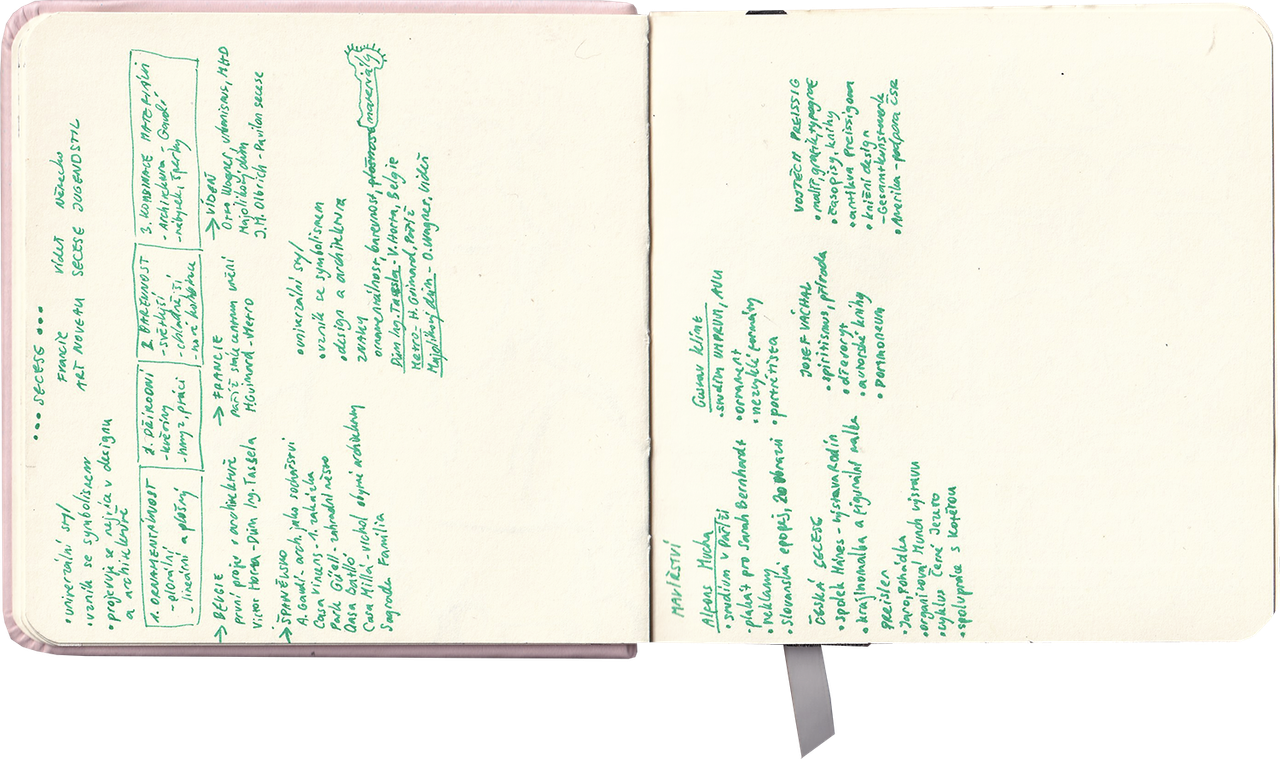 ••• SECESE •••
Francie Vídeň Německo
ART NOVEAU SECESE JUGENDSTIL
• univerzální
• vznik se symbolismem
• projevuje se nejvíc v designu
a architektuře
1. ORNAMENTÁLNOST
- florální
- lineární a plošný
2. PŘÍRODNÍ
- květiny
- hmyz, práci
2. BAREVNOST
- světlejší
- chladnější
3. KOMBINACE MATERIÁLŮ
- Architektura - Gaudí
- nábytek, šperky
→ BELGIE
první projev v architektuře
Victor Horta - Dům Ing. Tassela
→ FRANCIE
Paříž
H. Guimard - Metro
→ VÍDEŇ
Otto Wagner, urbanismus, MHD
Majolikový dům
J. M. Olbrich - Pavilon secese
→ ŠPANĚLSKO
A. Gaudí - arch. jako sochařství
Casa Vincens - 1. zakázka
Park Güell - zahradní město
Casa Batlló
Casa Millá - vrchol obytné architektury
Sagrada Familia
• univerzální
• vznik se symbolismem
• design a architektura
ZNAKY
ornamentálnost, barevnost, plošnost materiály
Dům Ing. Tassela - V. Horta, Belgie
Metro - H. Guimard, Paříž
Majolikový dům - O. Wagner, Vídeň
MALÍŘSTVÍ
Alfons Mucha
• studium v Paříži
- plakát pro Sarah Bernhardt
• reklamy
• Slovanská epopej, 20 obrazů
Gustav Klimt
• studium UMPRUM, AVU
• ornament
• nezvyklé formáty
• portrétista
ČESKÁ SECESE
• spolek Mánes - výstava Rodin
• krajinomalba a figurální malba
PREISLER
• Jaro, Pohádka
• organizoval Munch výstavu
• cyklus Černé Jezero
• spolupráce s Kotěrou
JOSEF VÁCHAL
• spiritismus, příroda
• dřevoryt
• autorské knihy
• PORTMONEUM
VOJTĚCH PREISSIG
• malíř, grafik, typograf
• časopisy, knihy
• antikva Preissigova
• knižní design
- Gesamtkunstwerk
• Amerika - podpora ČSR